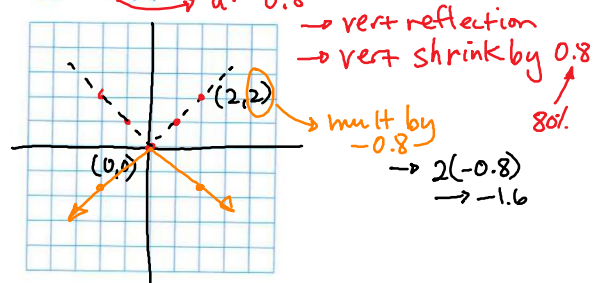 → vert reflection
→ vert shrink by 0.8
80%
(2,2)
→ mult by
-0.8
(0,0)
→ 2(-0.8)
→ -1.6